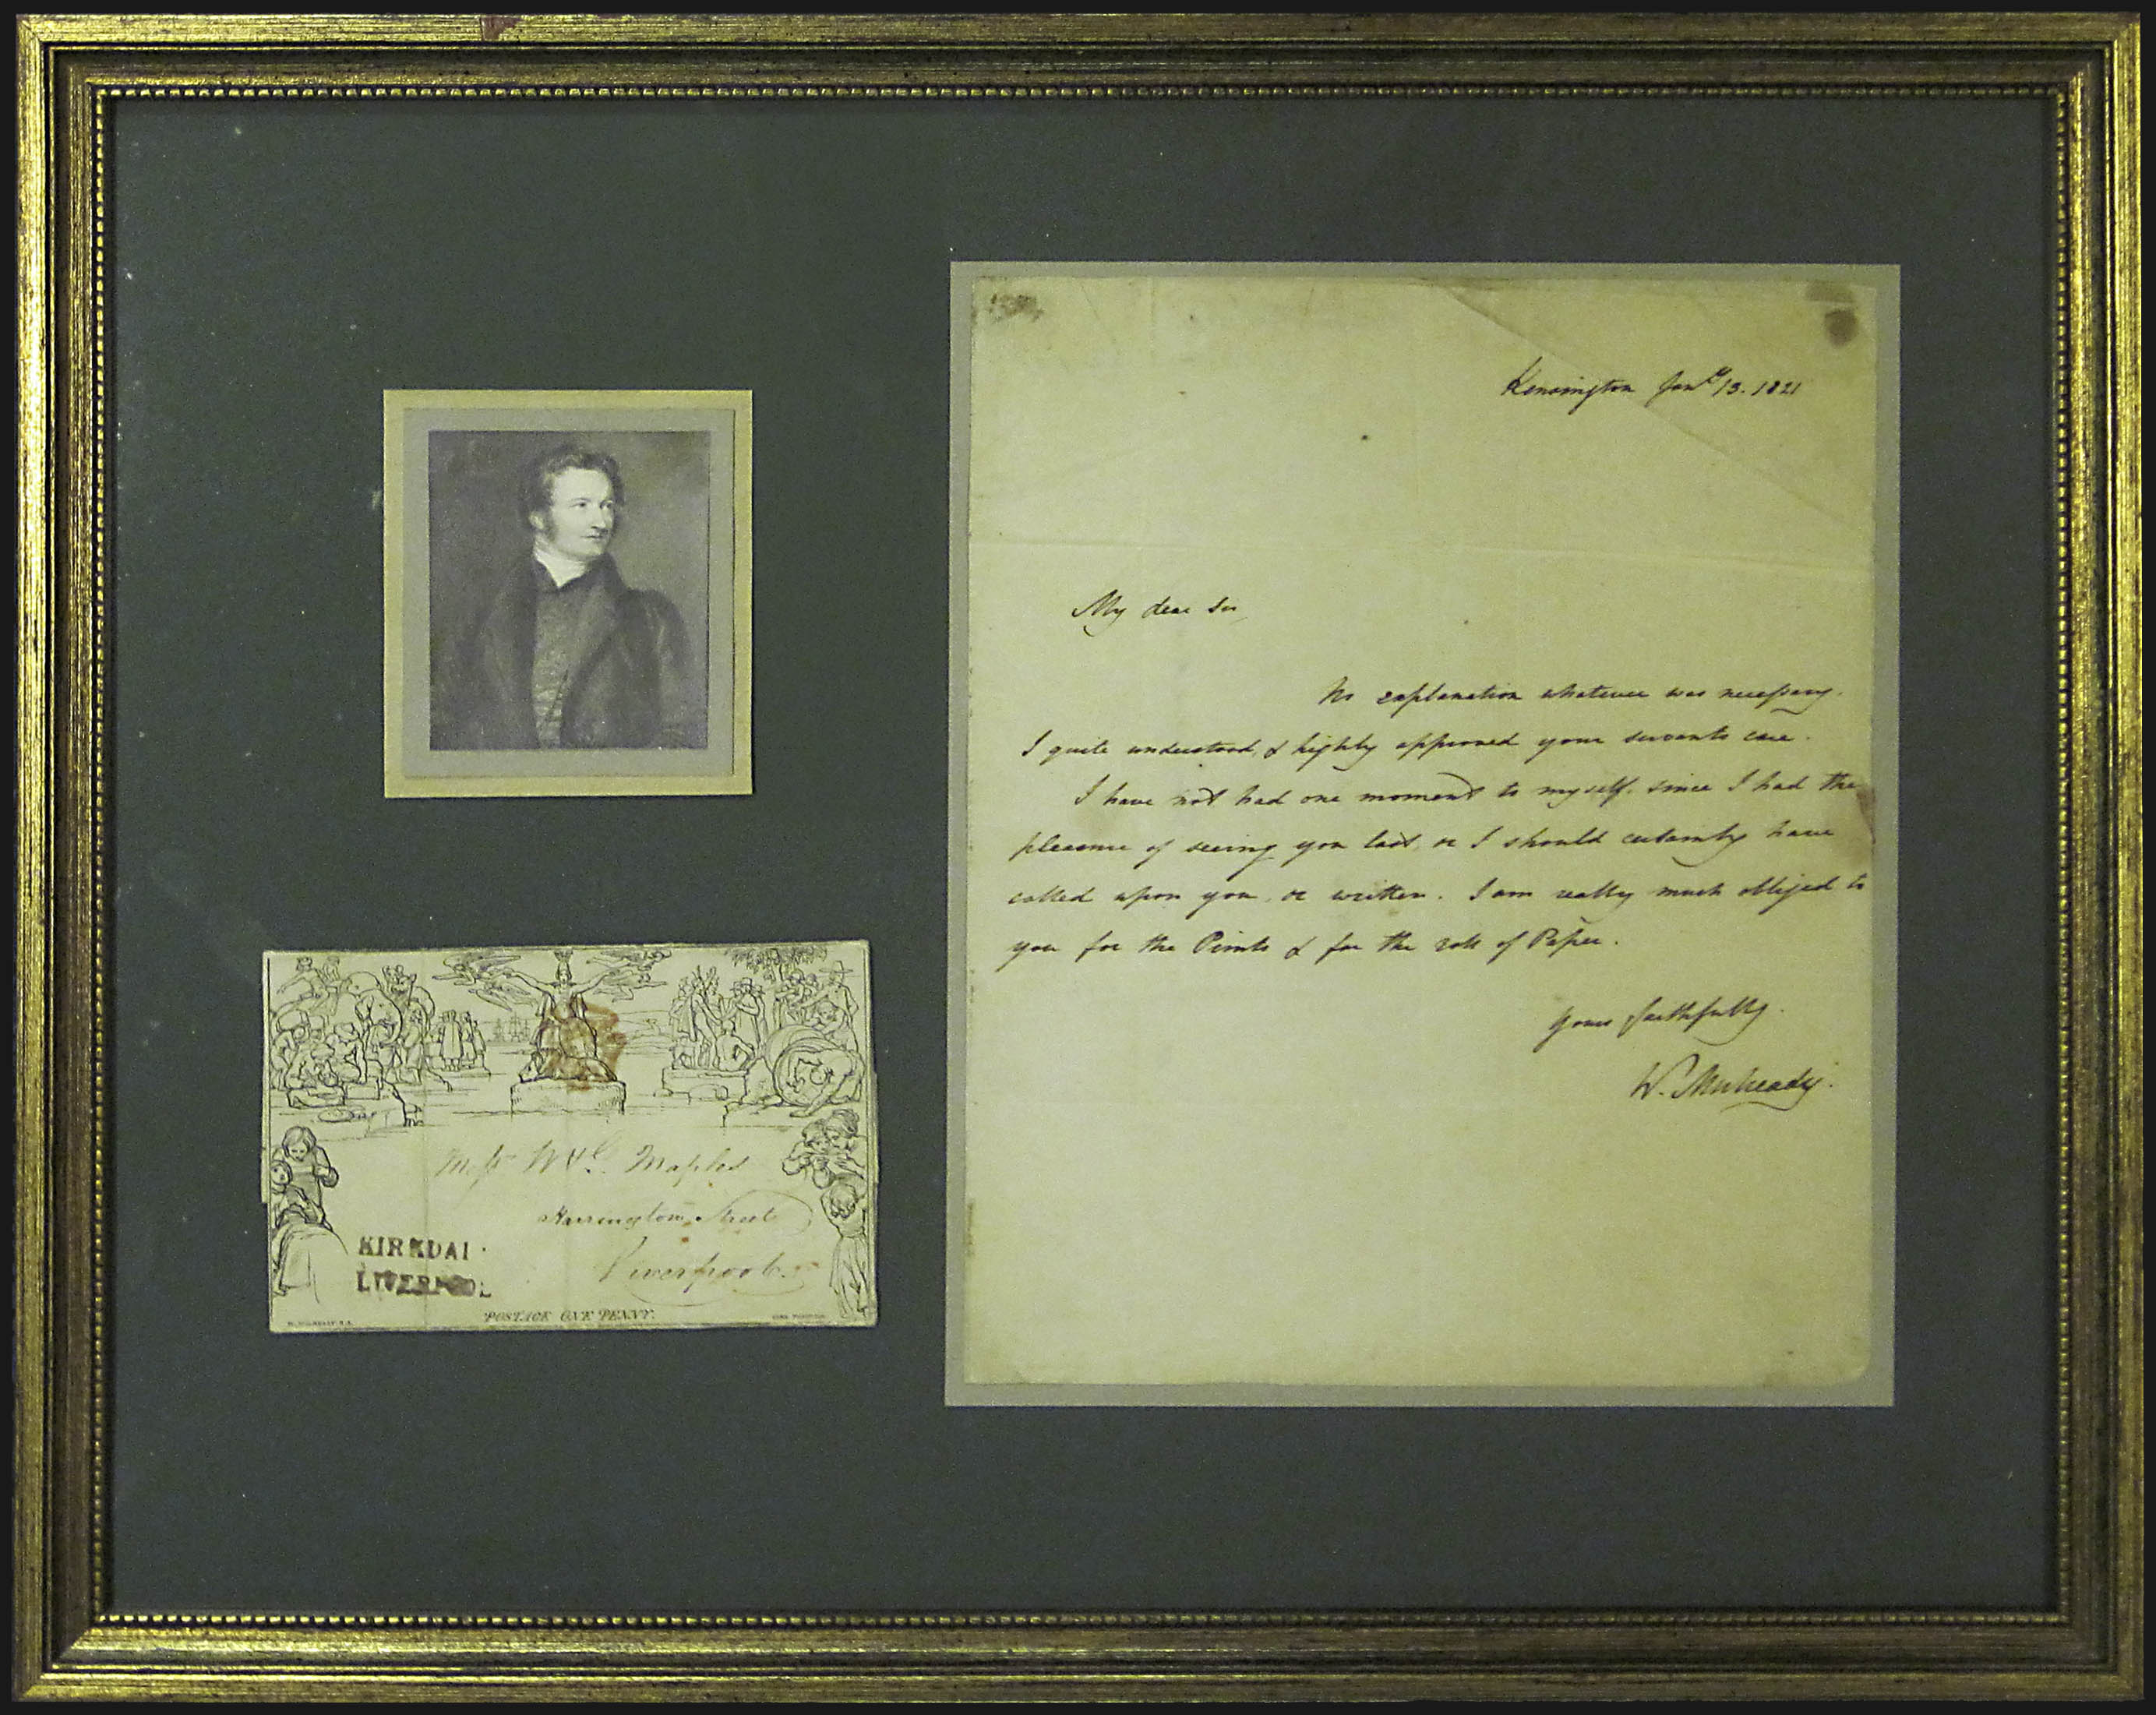 Kensington Jany 13. 1821
My dear Sir,
No explanation whatever was necessary.
I quite understood, & highly approved your servants care.
I have not had one moment to myself. since I had the
pleasure of seeing you last, or I should certainly have
called upon you, or written. I am really much obliged to
you for the Prints & for the roll of Paper.
Yours faithfully.
W. Mulready.
Messrs W & C. Maples
Harrington Street
Liverpool.
KIRKDAL
LIVERPOOL
POSTAGE ONE PENNY.
W. MULREADY R.A.